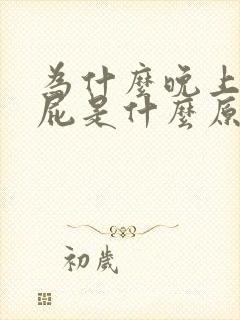 為什麼晚上
屁是什麼原
初歲